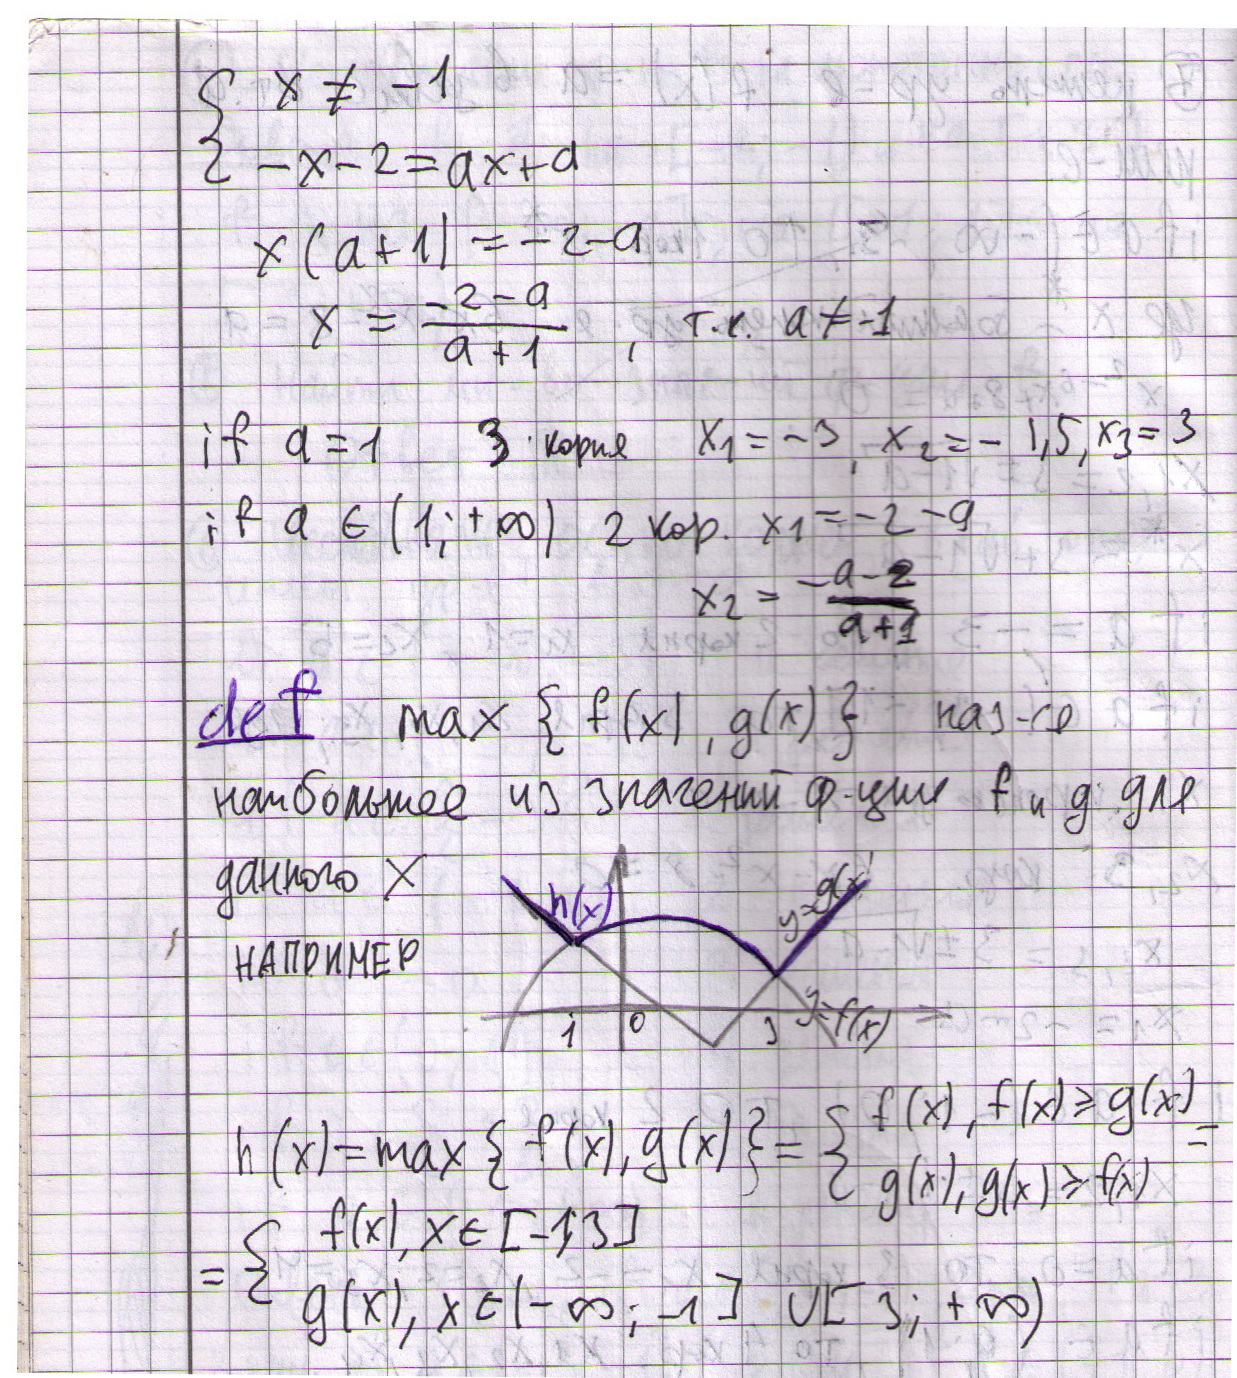 { x ≠ -1
-x-2=ax+a
x(a+1)=-2-a
x = \frac{-2-a}{a+1}, т.к. a≠-1
if a=1 3 корня x₁=-3, x₂=-1,5, x₃=3
if a∈(1;+∞) 2 кор. x₁=-2-a
x₂ = \frac{-a-2}{a+1}
def max {f(x), g(x)} наз-ся
наибольшее из значений ф-ции f и g для
данного x
НАПРИМЕР
h(x)
y=g(x)
1 0 3 y=f(x)
h(x)=max{f(x), g(x)}={ f(x), f(x)≥g(x) =
g(x), g(x)≥f(x)
= { f(x), x∈[-1;3]
g(x), x∈(-∞;-1] ∪[3;+∞)